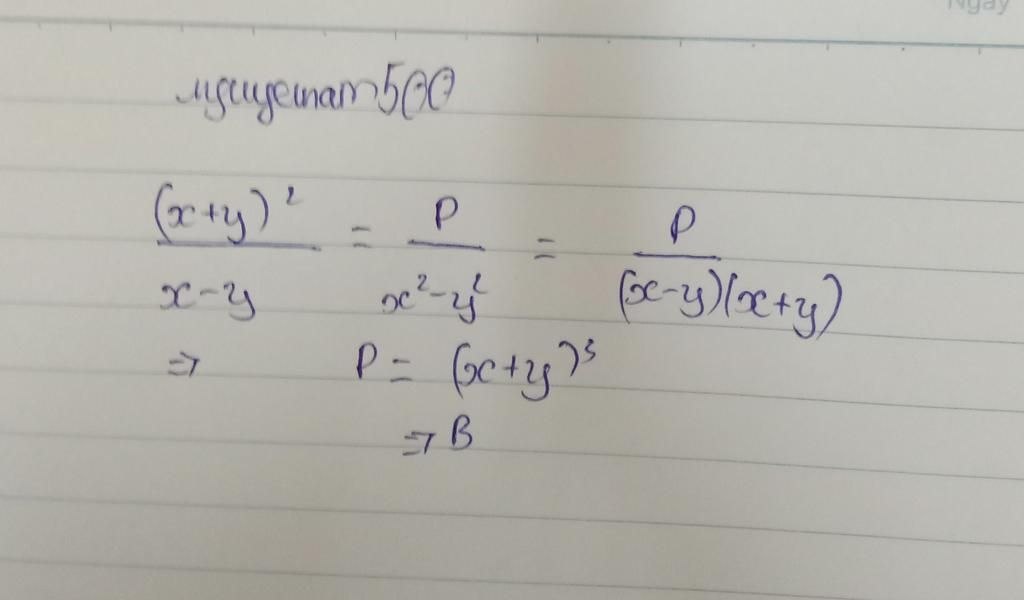 Ngay
nguyetnam500
(x+y)² / x-y = P / x²-y² = P / (x-y)(x+y)
⇒ P = (x+y)³
⇒ B